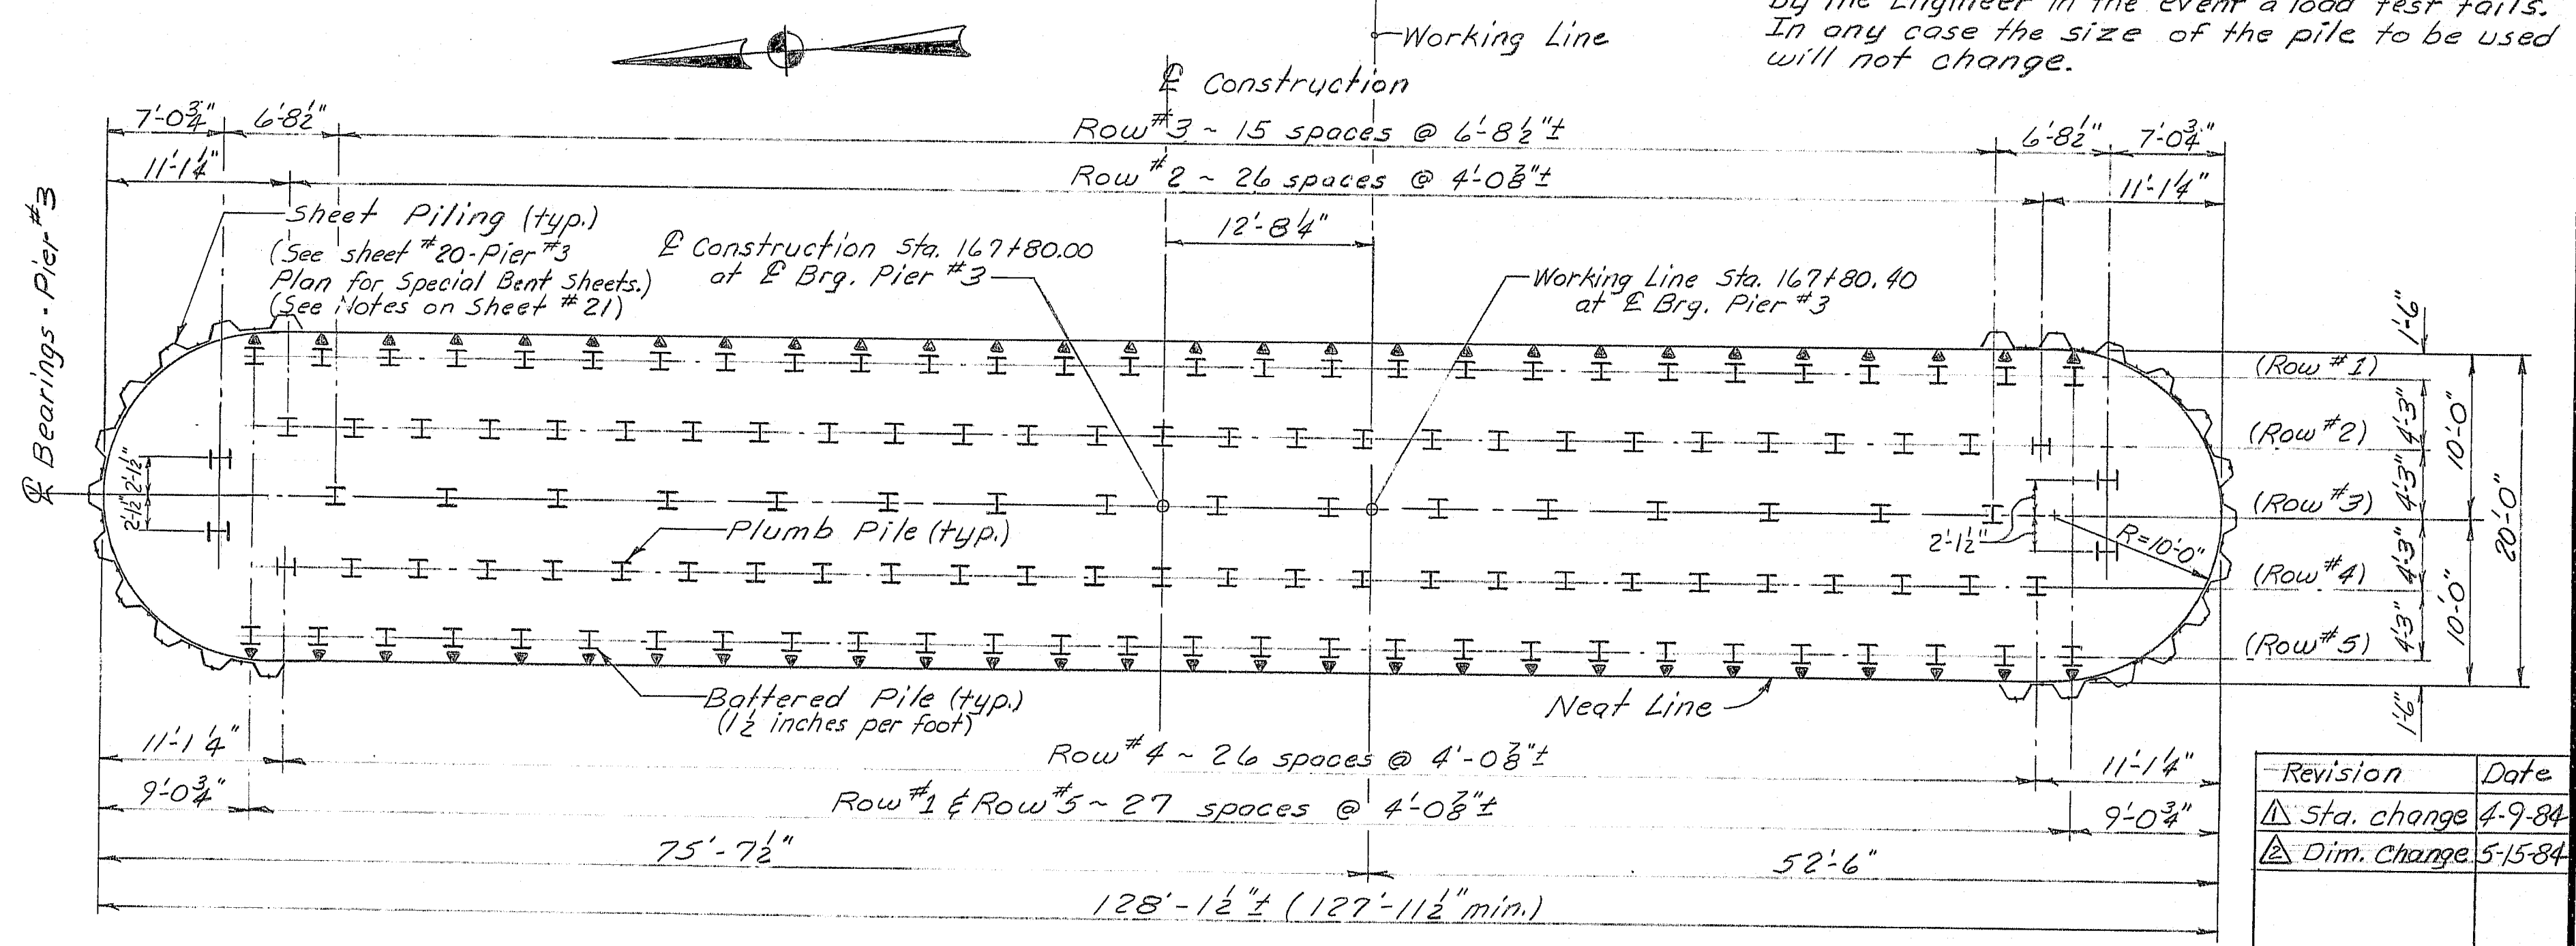 by the Engineer in the event a load test fails.
In any case the size of the pile to be used
will not change.
Working Line
℄ Construction
7'-0¾" 6'-8½" Row #3 ~ 15 spaces @ 6'-8½"± 6'-8½" 7'-0¾"
11'-1¼" Row #2 ~ 26 spaces @ 4'-0⅞"± 11'-1¼"
12'-8¼"
℄ Bearings - Pier #3
Sheet Piling (typ.)
(See sheet #20-Pier #3
Plan for Special Bent Sheets.)
(See Notes on Sheet #21)
℄ Construction Sta. 167+80.00
at ℄ Brg. Pier #3
Working Line Sta. 167+80.40
at ℄ Brg. Pier #3
1'-6"
(Row #1)
(Row #2) 4'-3" 10'-0"
2'-1½" 2'-1½"
(Row #3) 4'-3" 20'-0"
Plumb Pile (typ.)
2'-1½"
R=10'-0"
(Row #4) 4'-3"
(Row #5) 4'-3" 10'-0"
1'-6"
Battered Pile (typ.)
(1½ inches per foot)
Neat Line
11'-1¼" Row #4 ~ 26 spaces @ 4'-0⅞"± 11'-1¼"
9'-0¾" Row #1 & Row #5 ~ 27 spaces @ 4'-0⅞"± 9'-0¾"
75'-7½" 52'-6"
128'-1½"± (127'-11½" min.)
Revision Date
1 Sta. change 4-9-84
2 Dim. Change 5-15-84